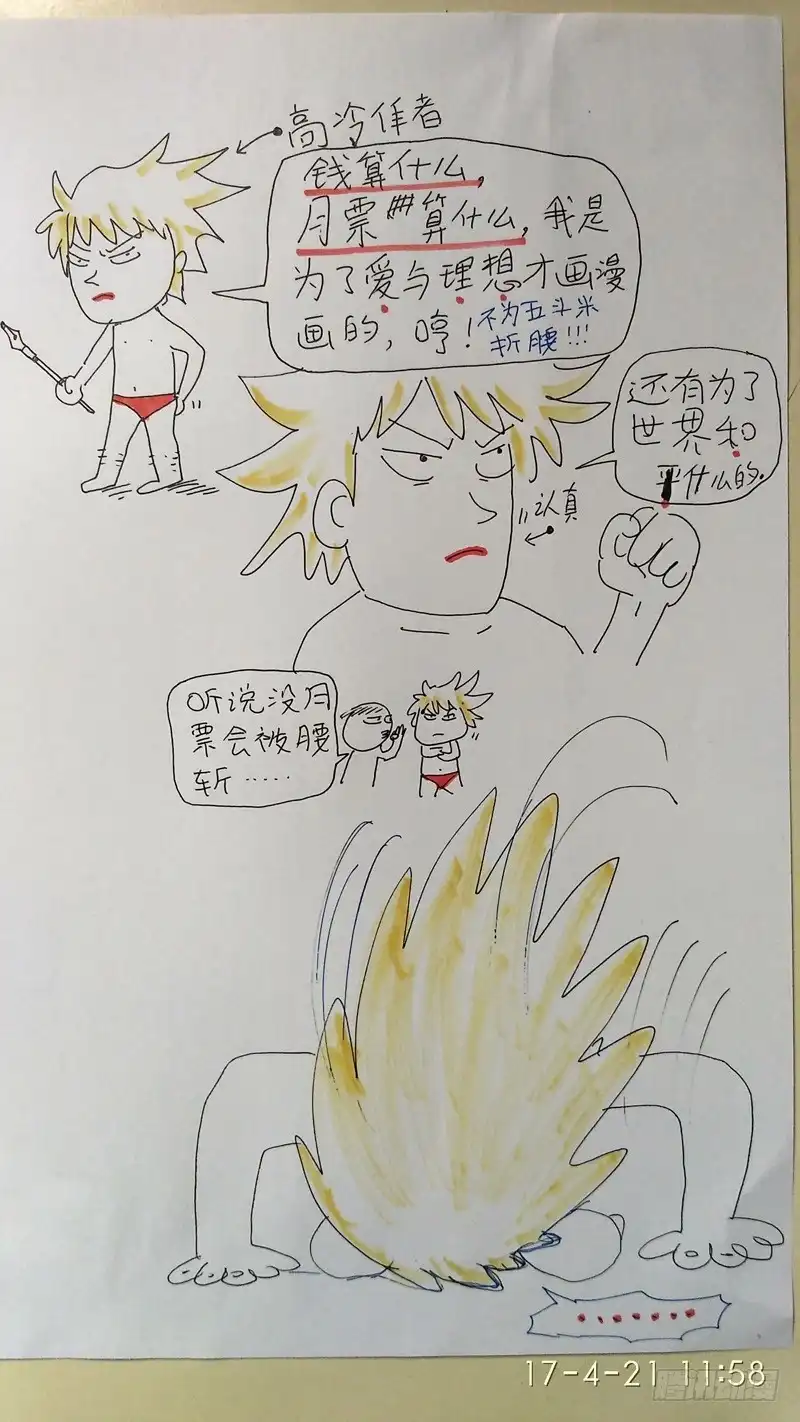 高冷作者
钱算什么,
月票算什么,我是
为了爱与理想才画漫
画的,哼!不为五斗米
折腰!!!
还有为了
世界和
平什么的.
认真
听说没月
票会被腰
斩……
......
17-4-21 11:58